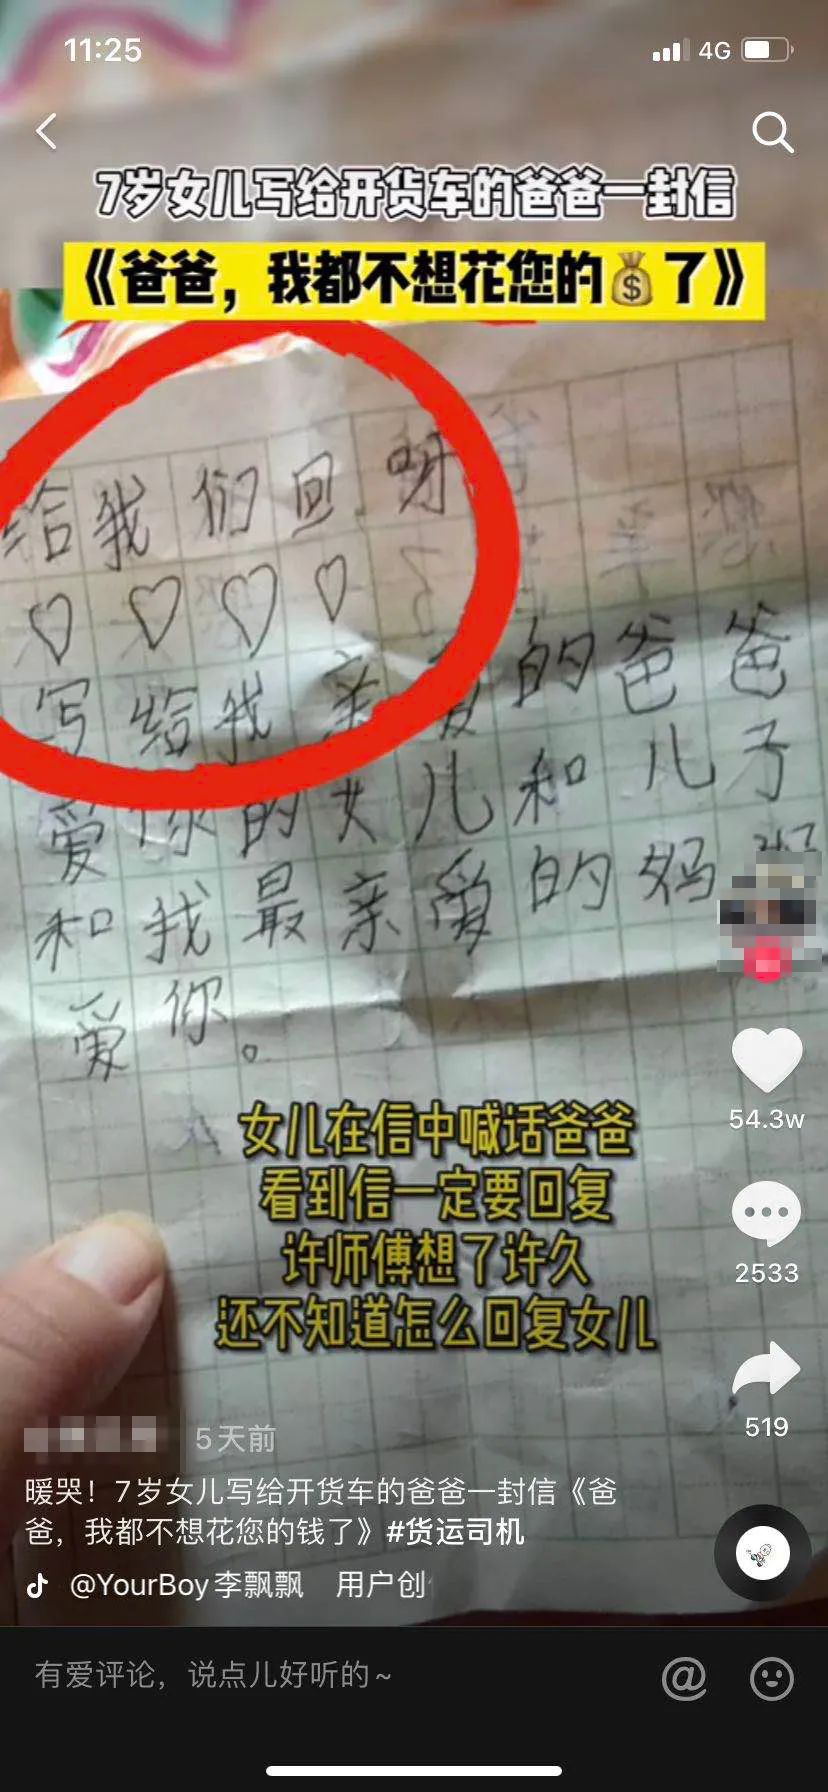 11:25
4G
7岁女儿写给开货车的爸爸一封信
《爸爸，我都不想花您的💰了》
给我们回呀
♡♡♡♡
写给我亲爱的爸爸
爱你的女儿和儿子
和我最亲爱的妈妈
爱你。
女儿在信中喊话爸爸
看到信一定要回复
许师傅想了许久
还不知道怎么回复女儿
54.3w
2533
519
5天前
暖哭！7岁女儿写给开货车的爸爸一封信《爸
爸，我都不想花您的钱了》#货运司机
@YourBoy李飘飘 用户创
有爱评论，说点儿好听的~